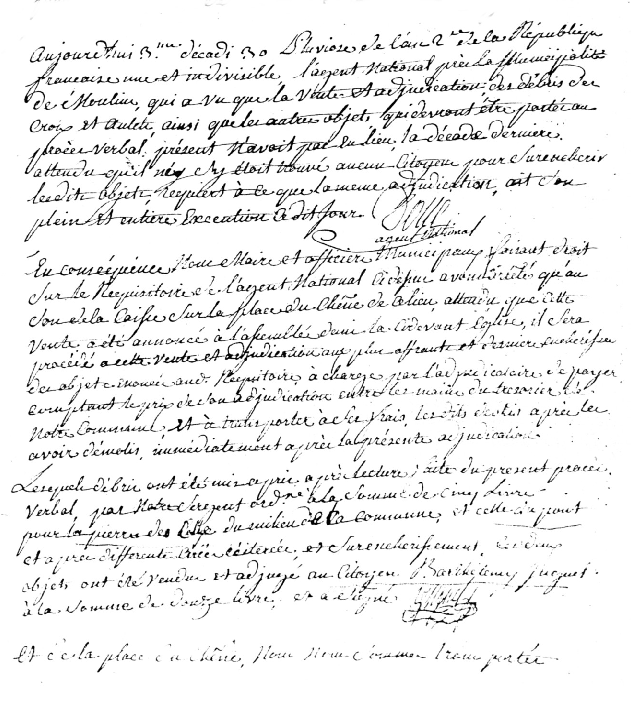 Aujourd'hui 3.me décadi 30 Pluviose de l'an 2.me de la République
française une et indivisible, l'agent National près la Municipalité
de Moulins, qui a vu que la Vente et adjudication des débris des
Croix et autels, ainsi que les autres objets qui devront être portés au
procès verbal, présent n'avoit pas eu lieu, la décade dernière
attendu qu'il ne s'y étoit trouvé aucun Citoyen pour Surencherir
lesdits objets, Requiert à ce que la meme adjudication, ait son
plein et entière Execution à dit jour.
agent national
En conséquence Nous Maire et officiers Municipaux faisant droit
Sur le Requisitoire de l'agent National Cidessus avons arrêté qu'au
Son de la Caisse Sur la place du Chêne de ce lieu, attendu que cette
Vente a été annoncé à l'assemblée dans la Cidevant Eglise, il Sera
procédé a cette Vente et adjudication aux plus offrants et derniers encherisseurs
des objets enoncés aud. Requisitoire, à charge par l'adjudicataire de payer
comptant le prix de son adjudication entre les mains du tresorier de
Notre Commune et à transporter à ses frais, les dits après les
avoir démolis, immédiatement après la présente adjudication.
Lesquels débris ont été mis a prix après lecture faite du present procès
Verbal, par Notre Sergent ord.re à la Somme de Cinq Livres
pour la pierre du milieu de la commune, et celle du pont
et après differentes criées réitérées, et Surencherissement, les deux
objets ont été Vendus et adjugé au Citoyen Barthélemy
à la Somme de douze livres, et a Signé
Et de la place du Chêne, Nous Nous Sommes transportés